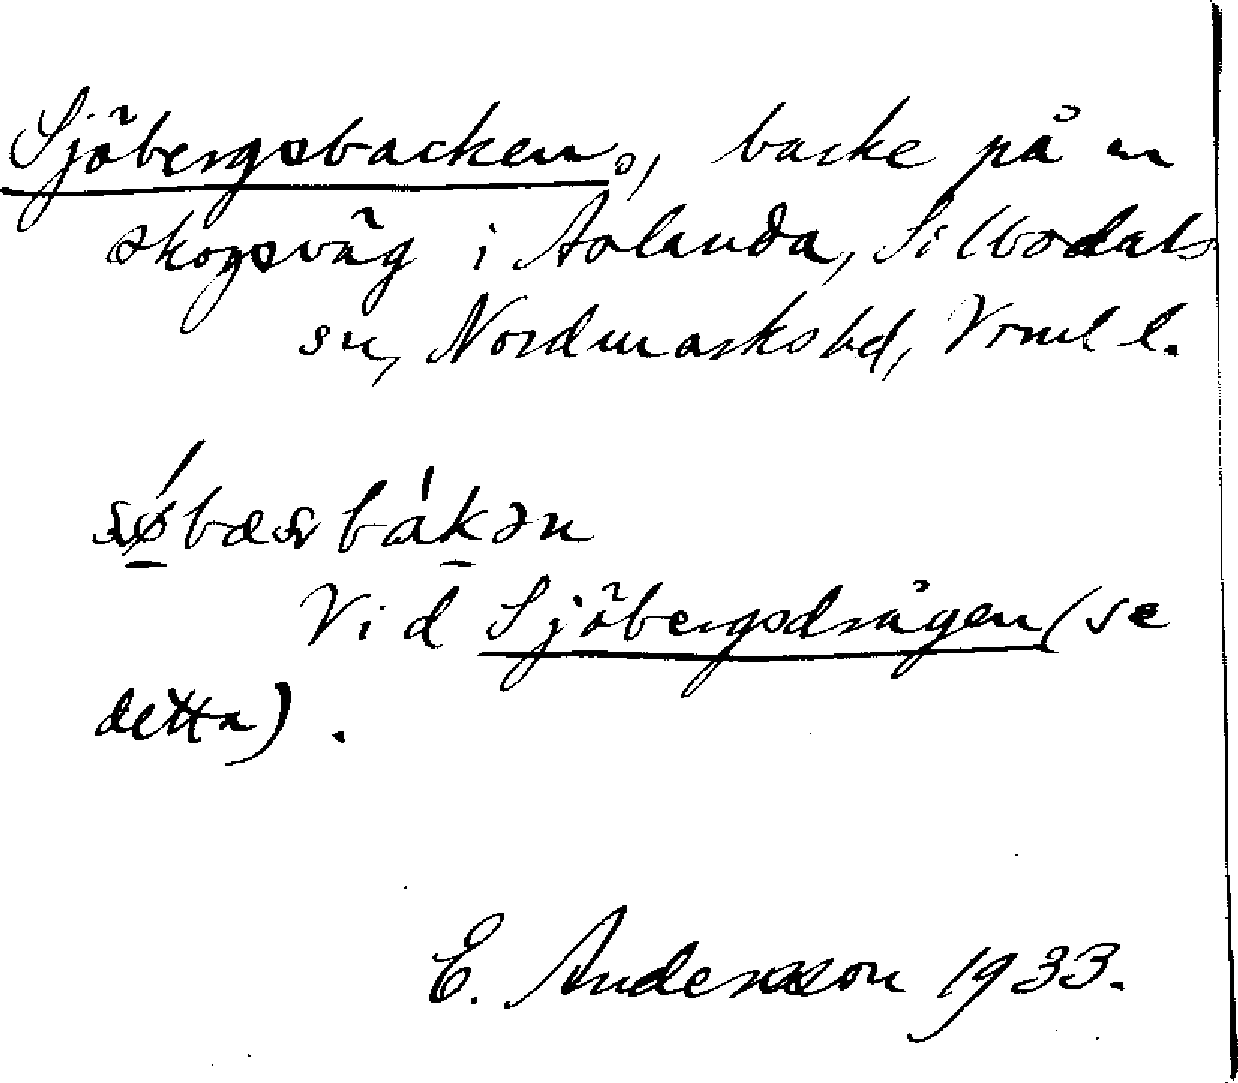 Sjöbergsbacken, backe på en
skogsväg i Årlanda, Silbodals
sn, Nordmarks hd, Vrml l.
Vid Sjöbergsdrågen (se
detta).
E. Andersson 1933.